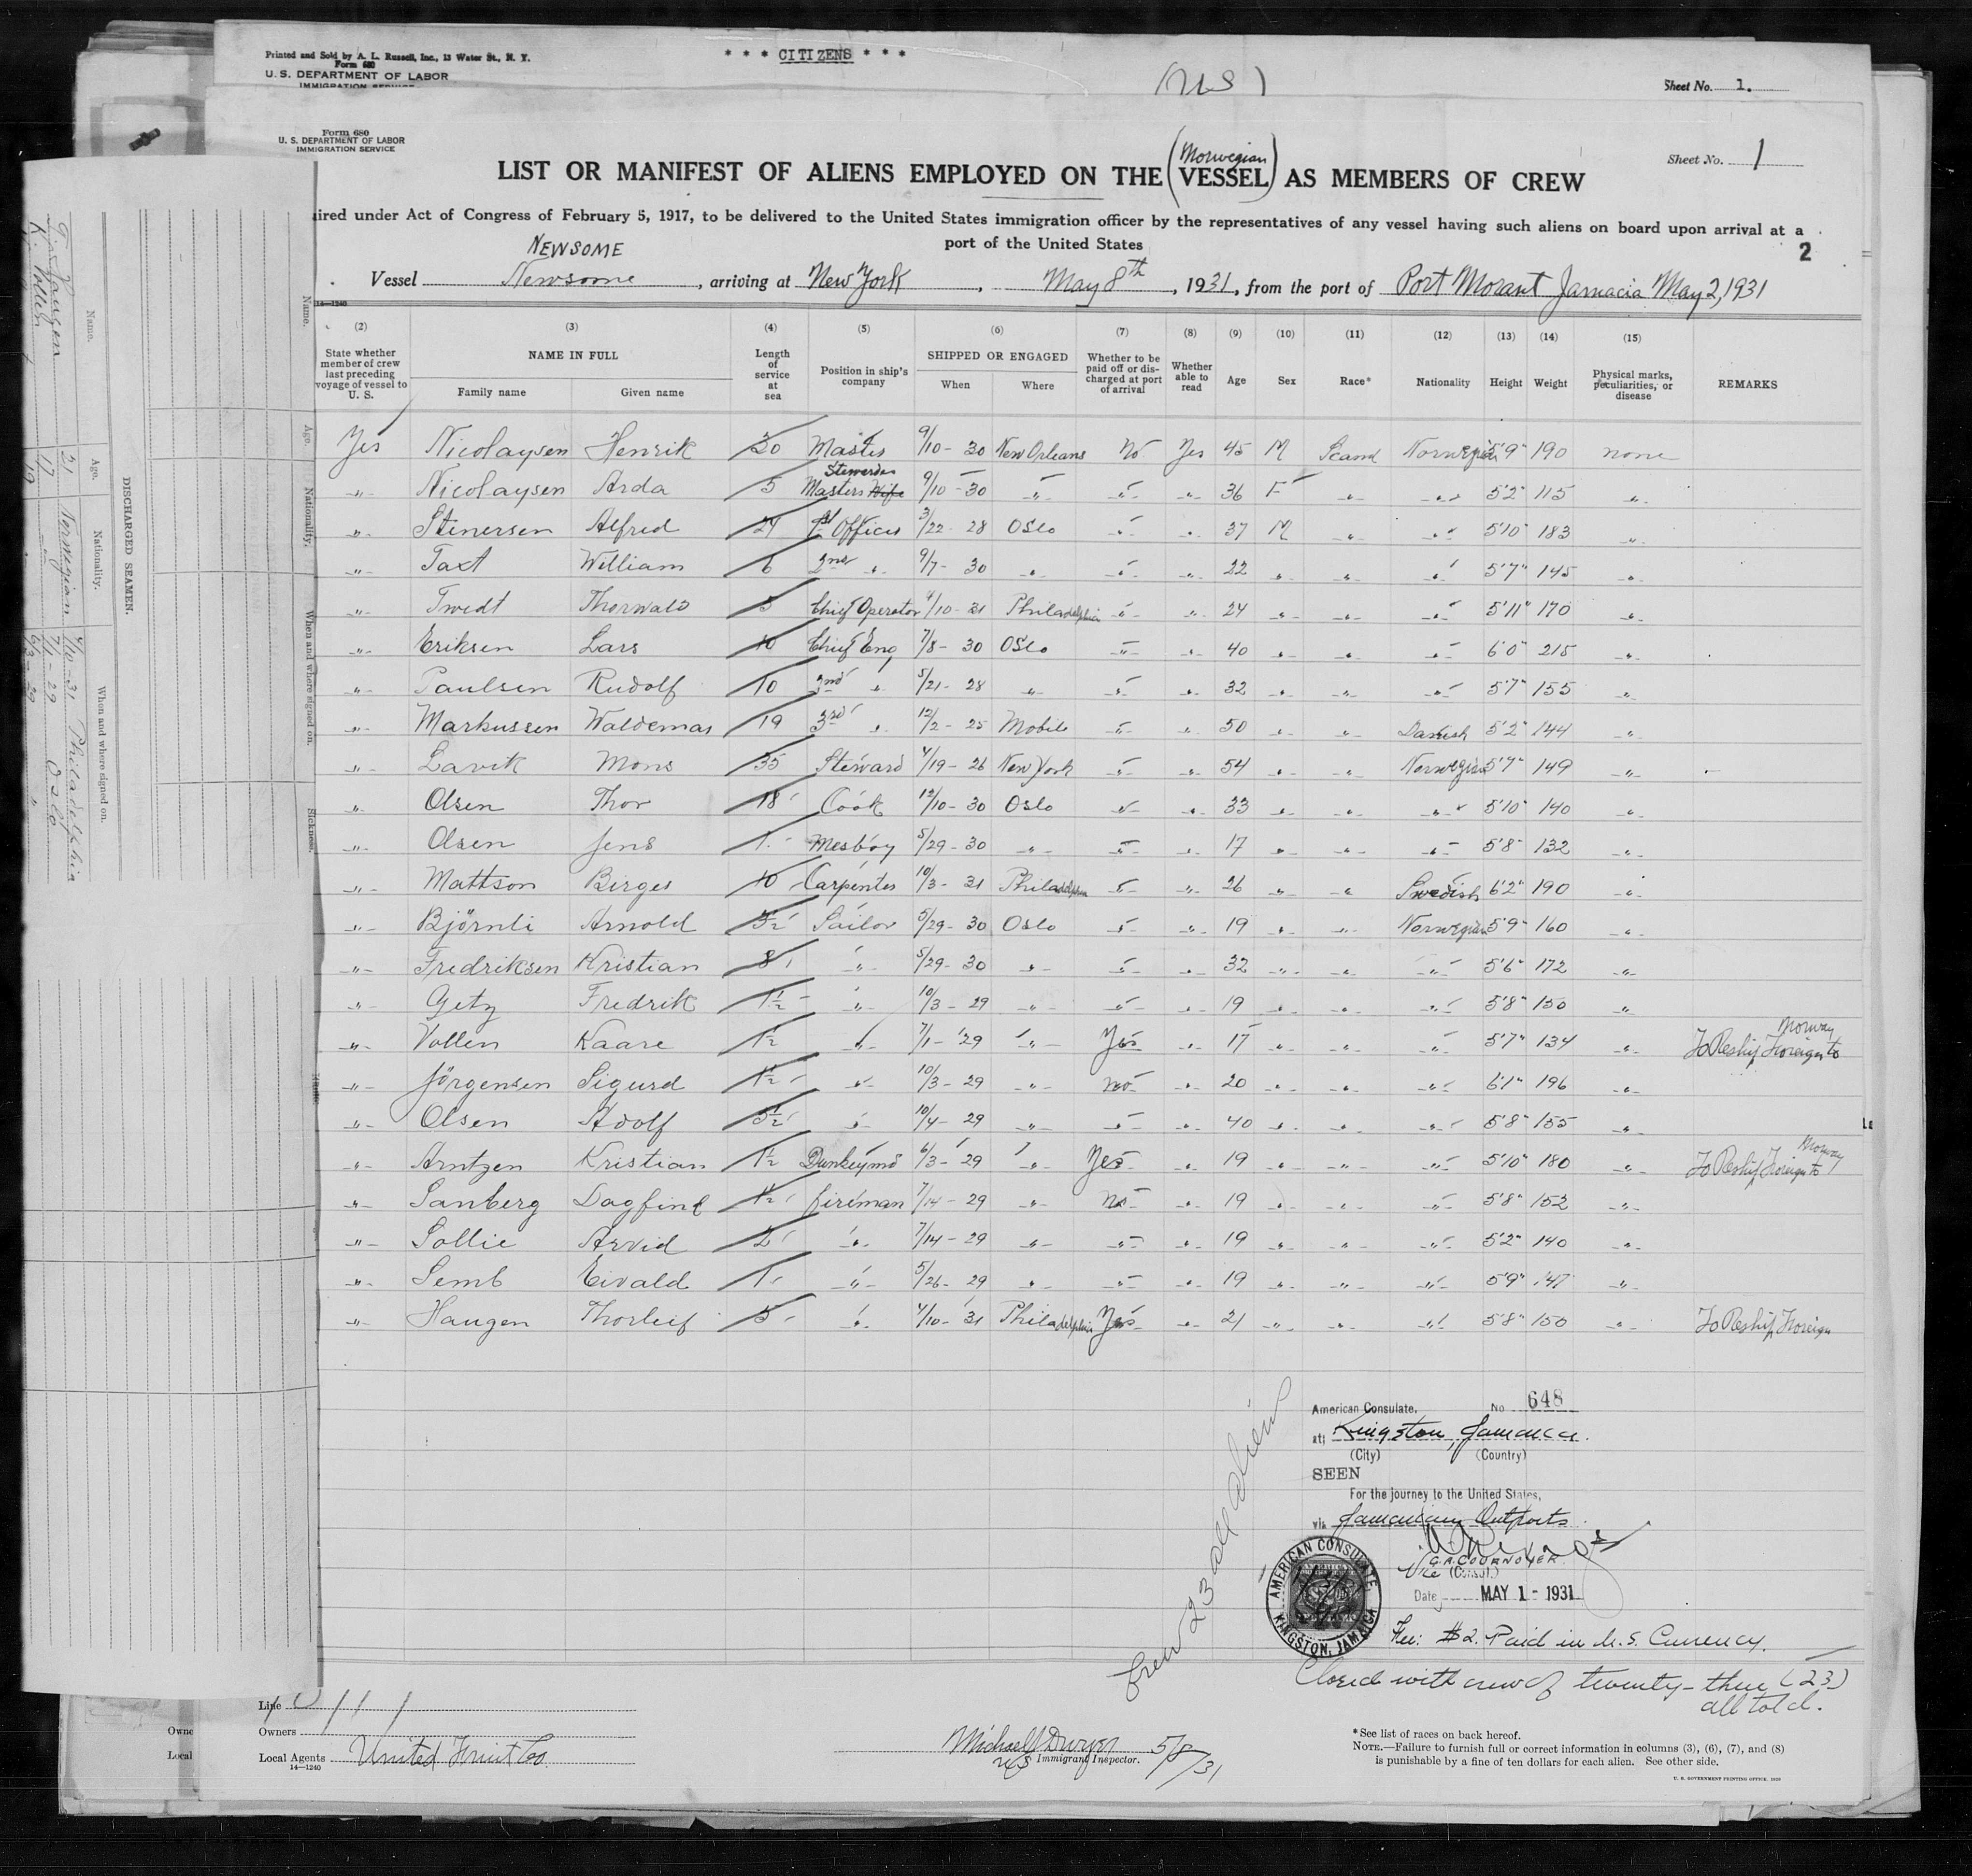 Printed and Sold by A. L. Russell, Inc., 13 Water St., N. Y.
Form 680
U. S. DEPARTMENT OF LABOR
IMMIGRATION SERVICE
* * * CITIZENS * * *
(US)
Sheet No. 1.
Form 680
U. S. DEPARTMENT OF LABOR
IMMIGRATION SERVICE
Sheet No. 1
LIST OR MANIFEST OF ALIENS EMPLOYED ON THE (Norwegian VESSEL) AS MEMBERS OF CREW
ired under Act of Congress of February 5, 1917, to be delivered to the United States immigration officer by the representatives of any vessel having such aliens on board upon arrival at a
port of the United States
2
NEWSOME
Vessel Newsome, arriving at New York, May 8th, 1931, from the port of Port Morant Jamacia May 2, 1931
14—1240
(2) (3) (4) (5) (6) (7) (8) (9) (10) (11) (12) (13) (14) (15)
State whether member of crew last preceding voyage of vessel to U. S. NAME IN FULL Family name Given name Length of service at sea Position in ship's company SHIPPED OR ENGAGED When Where Whether to be paid off or discharged at port of arrival Whether able to read Age Sex Race* Nationality Height Weight Physical marks, peculiarities, or disease REMARKS
Yes Nicolaysen Henrik 20 Master 9/10-30 New Orleans No Yes 45 M Scand Norwegian 5'9" 190 none
-"- Nicolaysen Arda 5 Masters Wife Stewerdes 9/10-30 -"- -"- -"- 36 F -"- -"- 5'2" 115 -"-
-"- Stenersen Alfred 24 1st Officer 3/22-28 Oslo -"- -"- 37 M -"- -"- 5'10" 183 -"-
-"- Taxt William 6 2nd -"- 9/7-30 -"- -"- -"- 22 -"- -"- -"- 5'7" 145 -"-
-"- Twedt Thorwald 5 Chief Operator 4/10-31 Philadelphia -"- -"- 24 -"- -"- -"- 5'11" 170 -"-
-"- Eriksen Lars 10 Chief Eng 7/8-30 Oslo -"- -"- 40 -"- -"- -"- 6'0" 215 -"-
-"- Paulsen Rudolf 10 2nd -"- 5/21-28 -"- -"- -"- 32 -"- -"- -"- 5'7" 155 -"-
-"- Markussen Waldemar 19 3rd -"- 12/2-25 Mobile -"- -"- 50 -"- -"- Danish 5'2" 144 -"-
-"- Lavik Mons 35 Steward 4/19-26 New York -"- -"- 54 -"- -"- Norwegian 5'7" 149 -"-
-"- Olsen Thor 18 Cook 12/10-30 Oslo -"- -"- 33 -"- -"- -"- 5'10" 140 -"-
-"- Olsen Jens 1 Mesboy 5/29-30 -"- -"- -"- 17 -"- -"- -"- 5'8" 132 -"-
-"- Mattson Birger 10 Carpenter 10/3-31 Philadelphia -"- -"- 26 -"- -"- Swedish 6'2" 190 -"-
-"- Björnli Arnold 3½ Sailor 5/29-30 Oslo -"- -"- 19 -"- -"- Norwegian 5'9" 160 -"-
-"- Fredriksen Kristian 8 -"- 5/29-30 -"- -"- -"- 32 -"- -"- -"- 5'6" 172 -"-
-"- Getz Fredrik 1½ -"- 10/3-29 -"- -"- -"- 19 -"- -"- -"- 5'8" 150 -"-
-"- Vollen Kaare 1½ -"- 7/1-29 -"- Yes -"- 17 -"- -"- -"- 5'7" 134 -"- To Reship Foreign to Norway
-"- Jörgensen Sigurd 1½ -"- 10/3-29 -"- no -"- 20 -"- -"- -"- 6'1" 196 -"-
-"- Olsen Adolf 5½ -"- 10/4-29 -"- -"- -"- 40 -"- -"- -"- 5'8" 155 -"-
-"- Arntzen Kristian 1½ Dunkeyman 6/3-29 -"- Yes -"- 19 -"- -"- -"- 5'10" 180 -"- To Reship Foreign to Norway
-"- Sanberg Dagfind 1½ fireman 7/14-29 -"- no -"- 19 -"- -"- -"- 5'8" 152 -"-
-"- Sollie Arvid 2 -"- 7/14-29 -"- -"- -"- 19 -"- -"- -"- 5'2" 140 -"-
-"- Semb Eivald 1 -"- 5/26-29 -"- -"- -"- 19 -"- -"- -"- 5'9" 147 -"-
-"- Haugen Thorleif 5 -"- 4/10-31 Philadelphia Yes -"- 21 -"- -"- -"- 5'8" 150 -"- To Reship Foreign
Crew 23 all aliens
American Consulate, No 648
at Kingston, Jamaica.
(City) (Country)
SEEN
For the journey to the United States,
via Jamaican Outports.
G. R. COURNOYER
Vice (Consul)
Date MAY 1 - 1931
AMERICAN CONSULATE
KINGSTON, JAMAICA
Fee: $2. Paid in U. S. Currency.
Closed with crew of twenty-three (23)
all told.
Line
Owners
Local Agents United Fruit Co.
14—1240
Michael J Dwyer 5/8/31
Immigrant Inspector.
*See list of races on back hereof.
NOTE.—Failure to furnish full or correct information in columns (3), (6), (7), and (8)
is punishable by a fine of ten dollars for each alien. See other side.
U. S. GOVERNMENT PRINTING OFFICE. 1929
Owne
Local
DISCHARGED SEAMEN.
Name. Age. Nationality. When and where signed on.
T. Haugen 21 Norwegian 4/10-31 Philadelphia
K. Vollen 17 -"- 7/1-29 Oslo
19 6/3-29 "
Name. Age. Nationality. When and where signed on. Sickness.